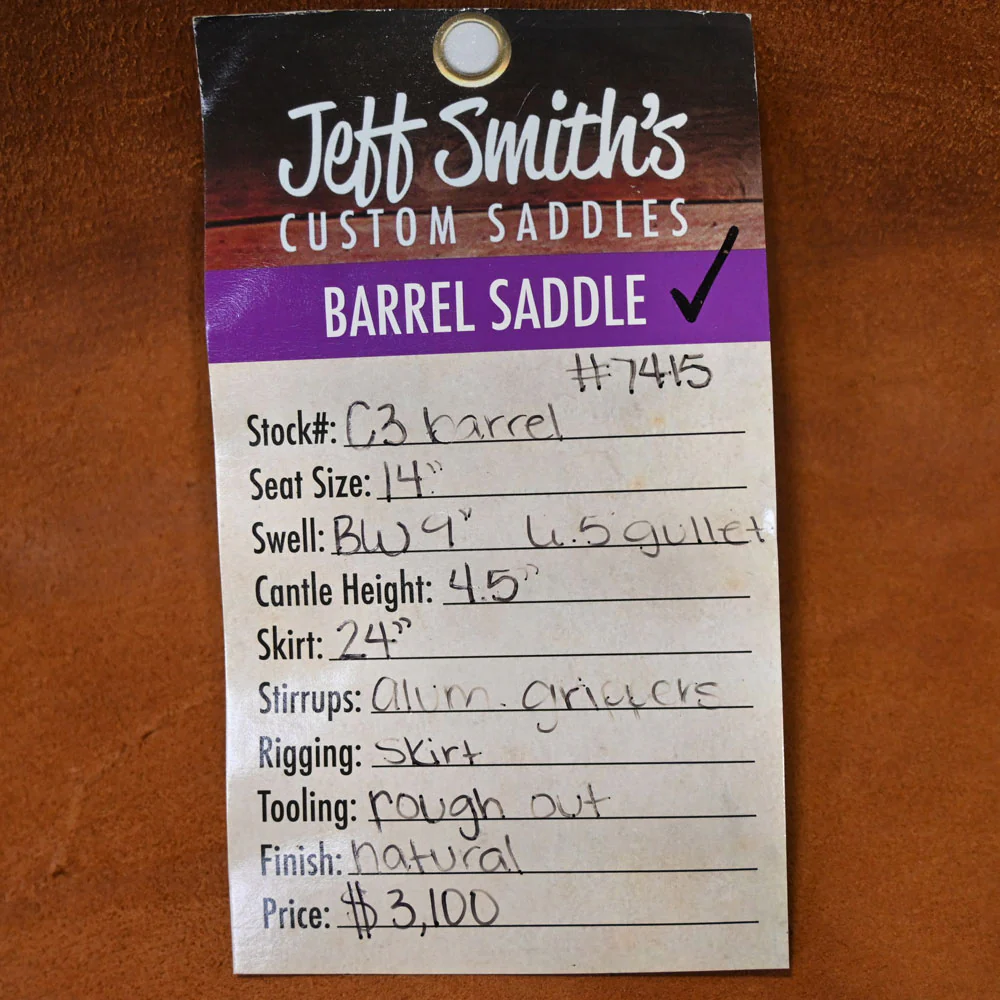 Jeff Smith's
CUSTOM SADDLES
BARREL SADDLE ✓
#7415
Stock#: C3 barrel
Seat Size: 14"
Swell: BW 9" 6.5 gullet
Cantle Height: 4.5"
Skirt: 24"
Stirrups: alum. grippers
Rigging: skirt
Tooling: rough out
Finish: natural
Price: $3,100